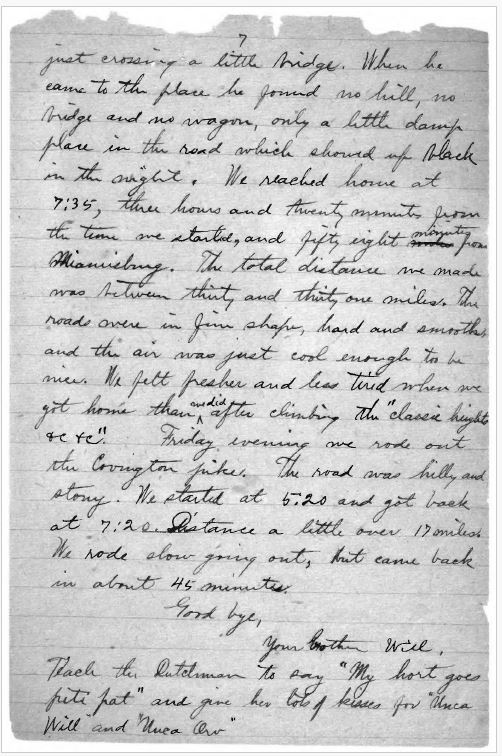 7
just crossing a little bridge. When he
came to the place he found no hill, no
bridge and no wagon, only a little damp
place in the road which showed up black
in the night. We reached home at
7:35, three hours and twenty minutes from
the time we started, and fifty eight minutes from
Miamisburg. The total distance we made
was between thirty and thirty one miles. The
roads were in fine shape, hard and smooth,
and the air was just cool enough to be
nice. We felt fresher and less tired when we
got home than we did after climbing the "classic heights
&c &c". Friday evening we rode out
the Covington pike. The road was hilly and
stony. We started at 5:20 and got back
at 7:20. Distance a little over 17 miles.
We rode slow going out, but came back
in about 45 minutes.
Good bye,
Your brother Will.
Teach the Dutchman to say "My hort goes
pite pat" and give her lots of kisses for "Unca
Will" and "Unca Orv"